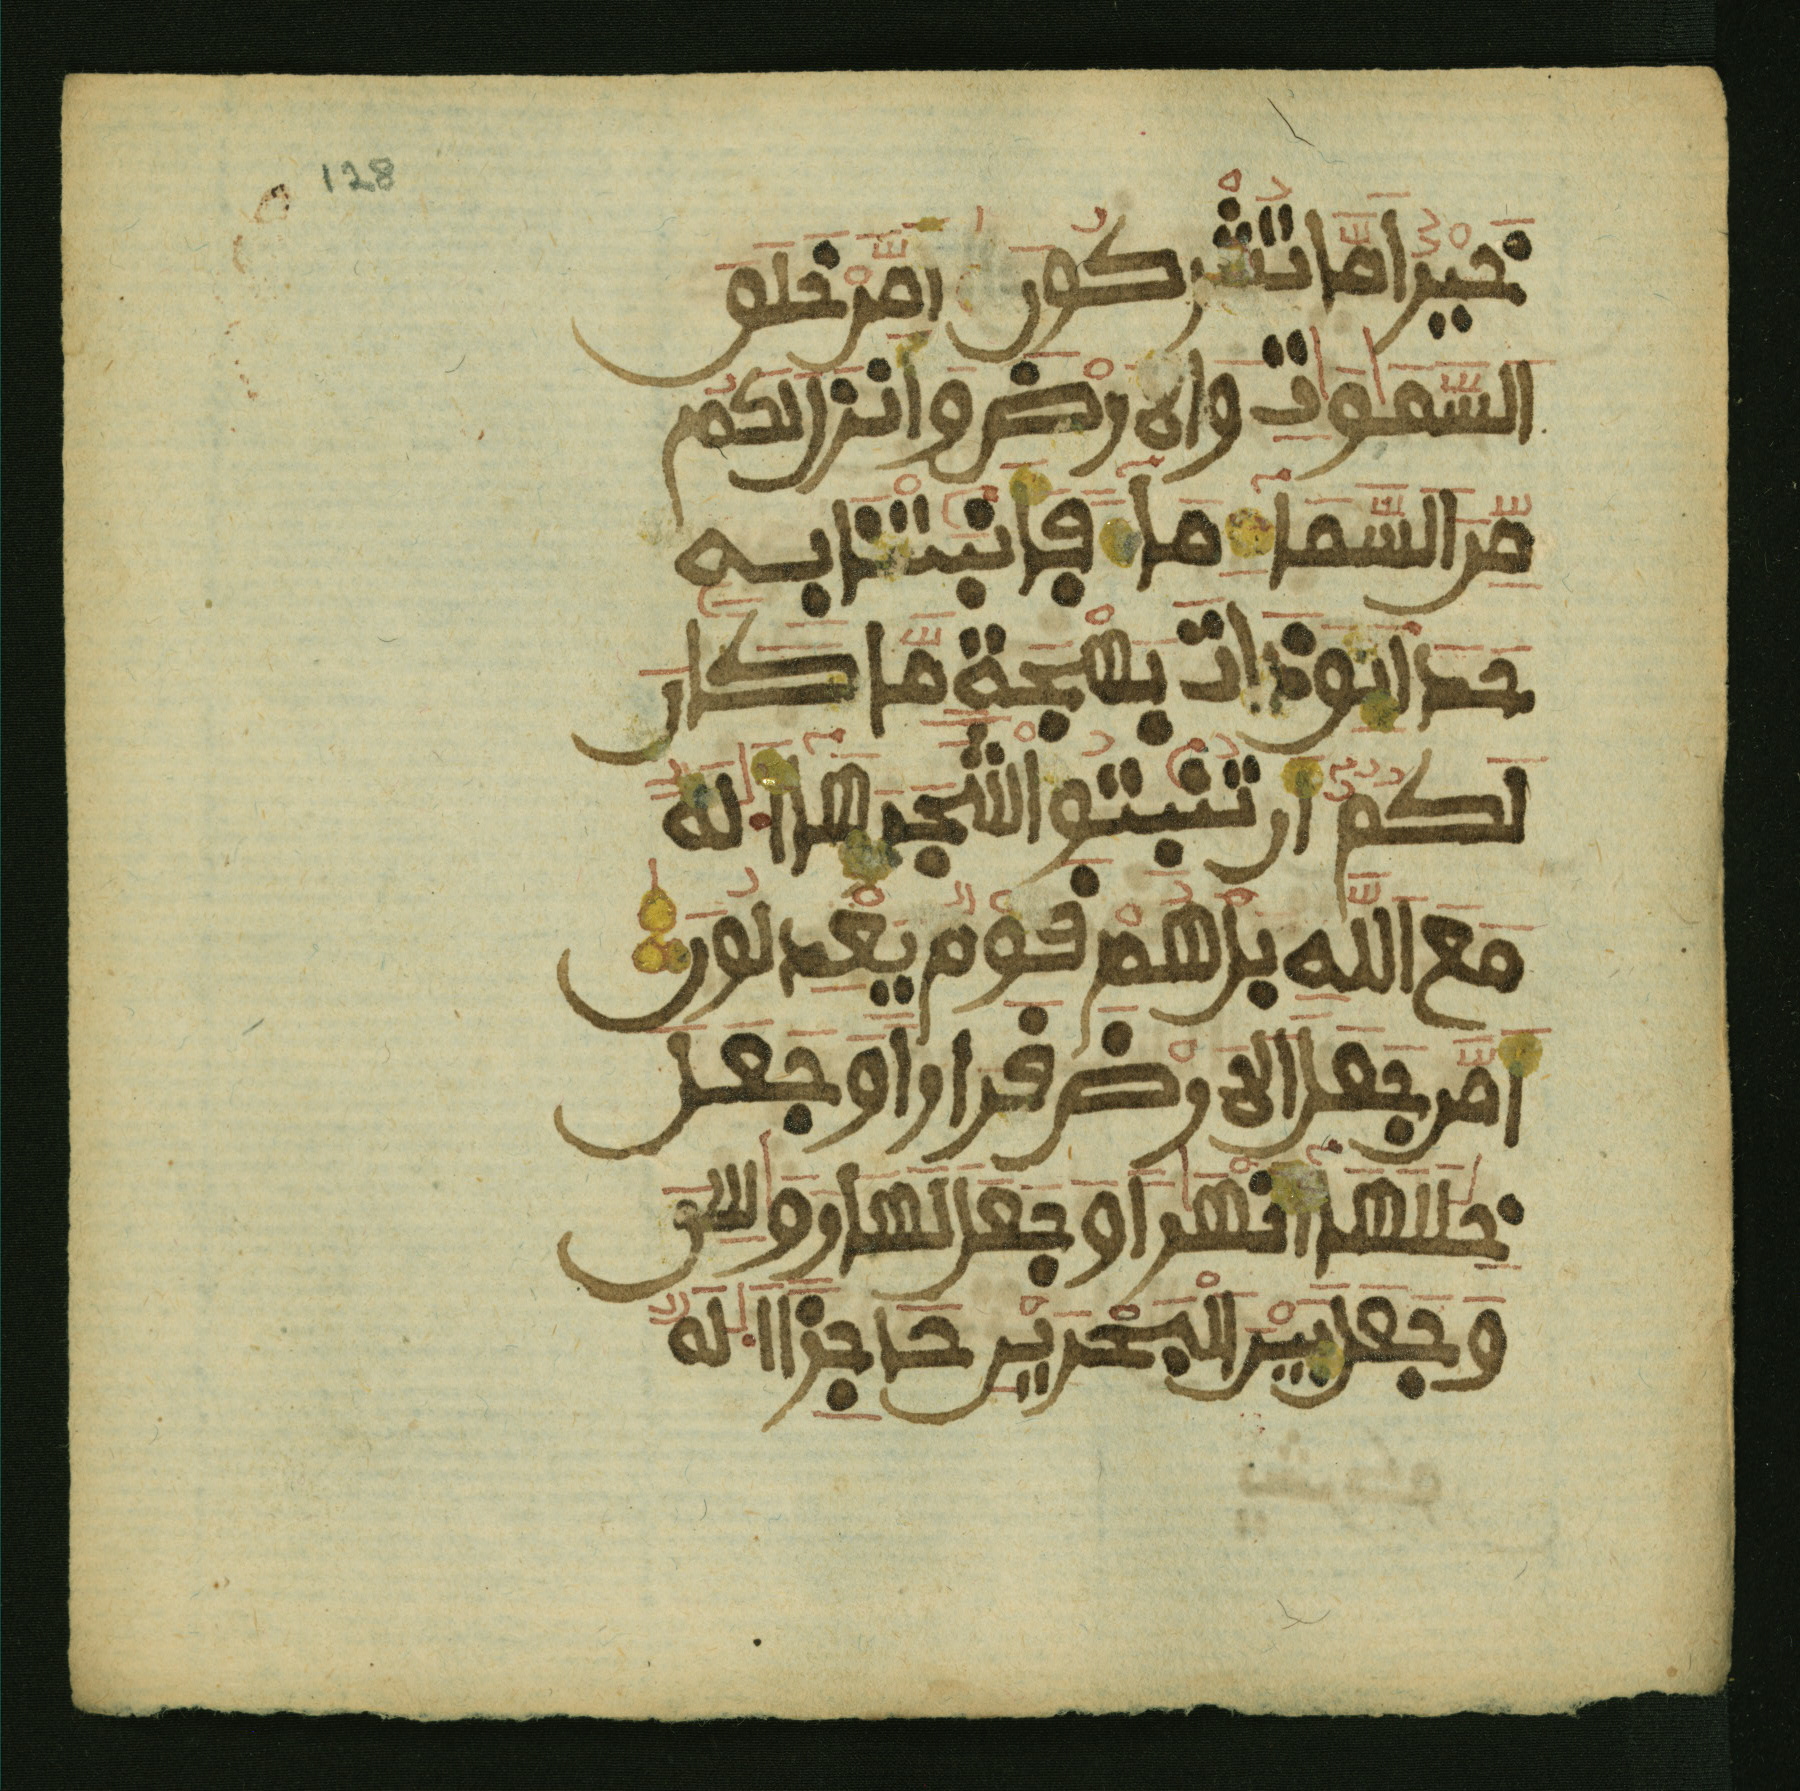 128
خير اما تشركون امن خلق
السموت والارض وانزل لكم
من السما ما فانبتنا به
حدايق ذات بهجة ما كان
لكم ان تنبتوا شجرها اله
مع الله بل هم قوم يعدلون
امن جعل الارض قرارا وجعل
خللها انهرا وجعل لها روسي
وجعل بين البحرين حاجزا اله